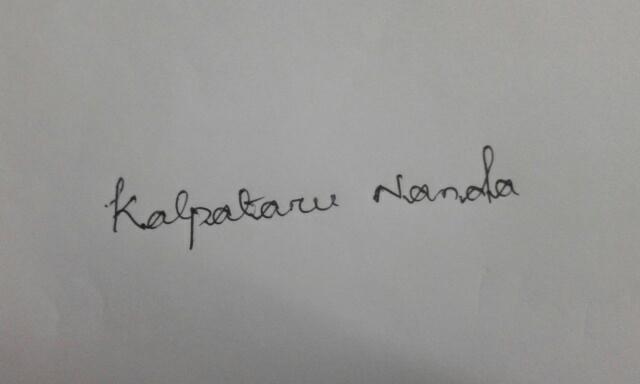 Kalpataru Nanda